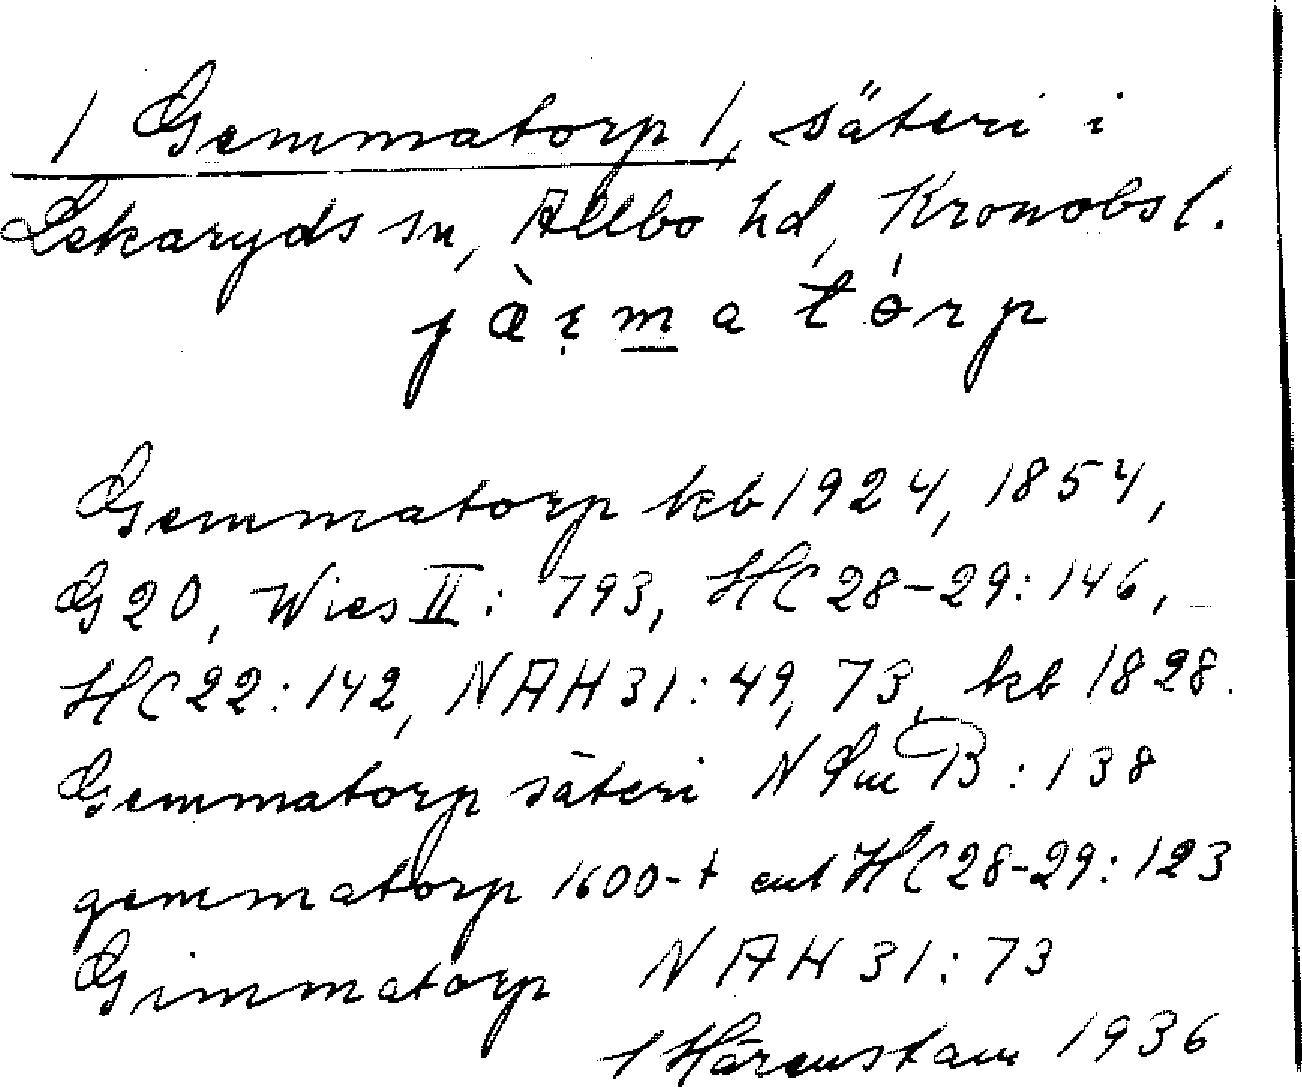 / Gemmatorp /, säteri i
Lekaryds sn, Allbo hd, Kronobs l.
Gemmatorp kb 1924, 1854,
G20, Wies II: 793, HC28-29: 146,
HC22: 142, NAH31: 49, 73, kb 1828.
Gemmatorp säteri N Sm B: 138
gemmatorp 1600-t enl HC28-29: 123
Gimmatorp NAH 31: 73
Härenstam 1936